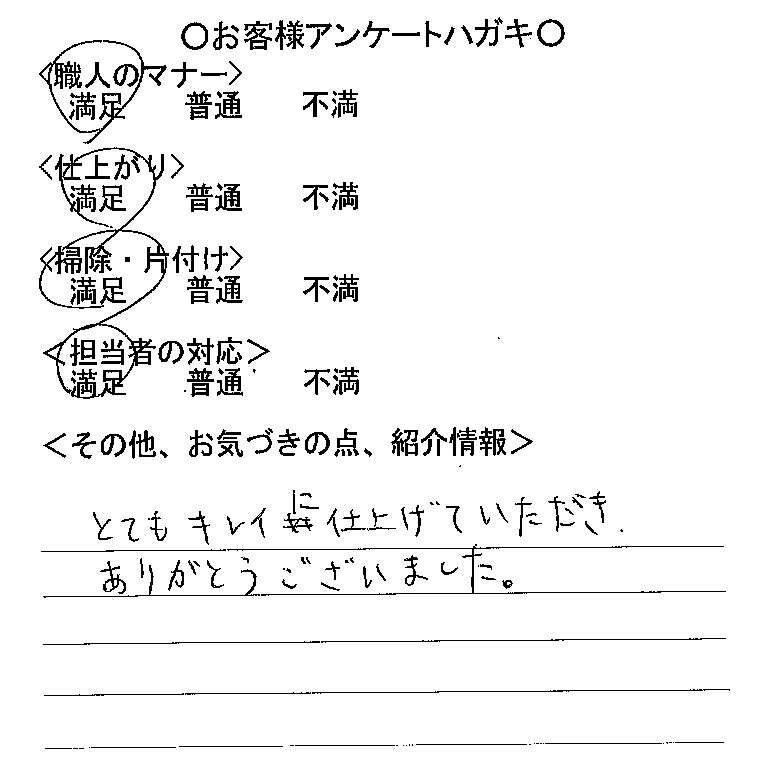 〇お客様アンケートハガキ〇
<職人のマナー>
満足 普通 不満
<仕上がり>
満足 普通 不満
<掃除・片付け>
満足 普通 不満
<担当者の対応>
満足 普通 不満
<その他、お気づきの点、紹介情報>
とてもキレイに仕上げていただき、
ありがとうございました。